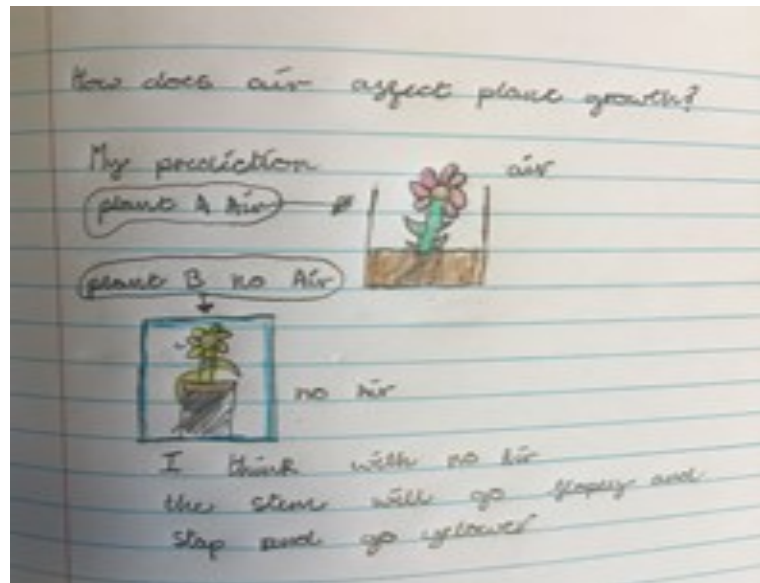 How does air affect plant growth?
My prediction
air
plant A Air
plant B no Air
no Air
I think with no Air
the stem will go flopey and
stap and go yelower